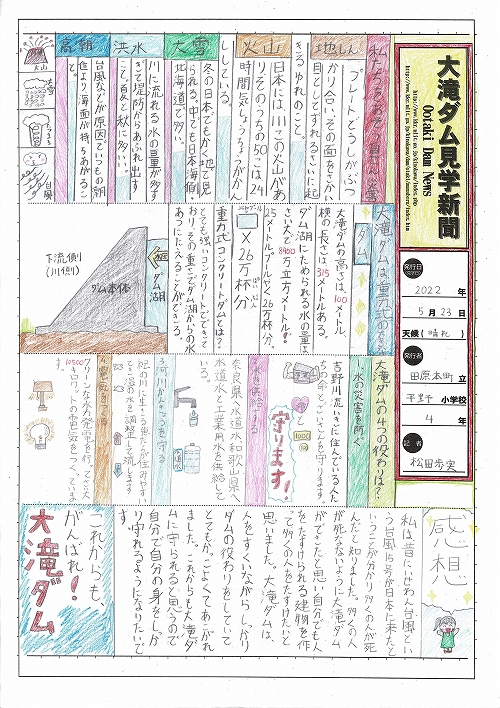 大滝ダム見学新聞
Ootaki Dam News
発行日
2022年
5月23日
天候（晴れ）
発行者
田原本町立
平野小学校
4年
記者
地しん
プレートどうしがぶつ
かり合い、その面をさかい
目としてずれるさいに起
きるゆれのこと。
火山
日本には、111この火山があ
りそのうちの50こは24
時間気しょうちょうがかん
ししている。
大雪
冬の日本でもかく地で見
られる。中でも日本海側・
北海道で多い。
洪水
川に流れる水の量が多す
ぎて堤防からあふれ出す
こと。夏と秋に多い。
高朝
台風などが原因でいつもの朝
位より海面が持ちあがるこ
と。
火山
大雪
台風
大滝ダムは重力式の
ダム
大滝ダムの高さは、100メートル。
横の長さは、315メートルある。
ダム湖にためられる水の量は
さい大で8400万立方メートル。
25メートルプールやく26万杯分。
×26万杯分
重力式コンクリートダムとは？
とても強いコンクリートでできて
おり、その重さでダム湖からの水の
あつにたえることができる。
ダム湖
ダム本体
下流側
（川側）
大滝ダムの4つの役わりは？
水の災害を防ぐ
吉野川流いきに住んでいる人た
ちの命とざいさんを守ります。
守ります！
奈良県水道水、和歌山県へ
水道水と工業用水を供給して
いる。
紀の川に生きる魚たちが住みやすい
ように川の水を調整して流します。
クリーンな水力発電を行ってさい大
10500キロワットの電気をつくっています
感想
私は昔にいせわん台風とい
う台風15号が日本に来たと
いうことが分かり多くの人が死
んだと知りました。多くの人
が死なないように大滝ダム
ができたと思い自分でも人
をたすけられる建物を作
って多くの人をたすけたいと
思いました。大滝ダムは、
人をすくいながらしっかり
ダムの役わりをしていて
とてもかっこよくてあこがれ
ました。これからも大滝ダ
ムに守られると思うので
自分で自分の身をしっか
り守れるようになりたいで
す
これからも、
がんばれ！
大滝ダム